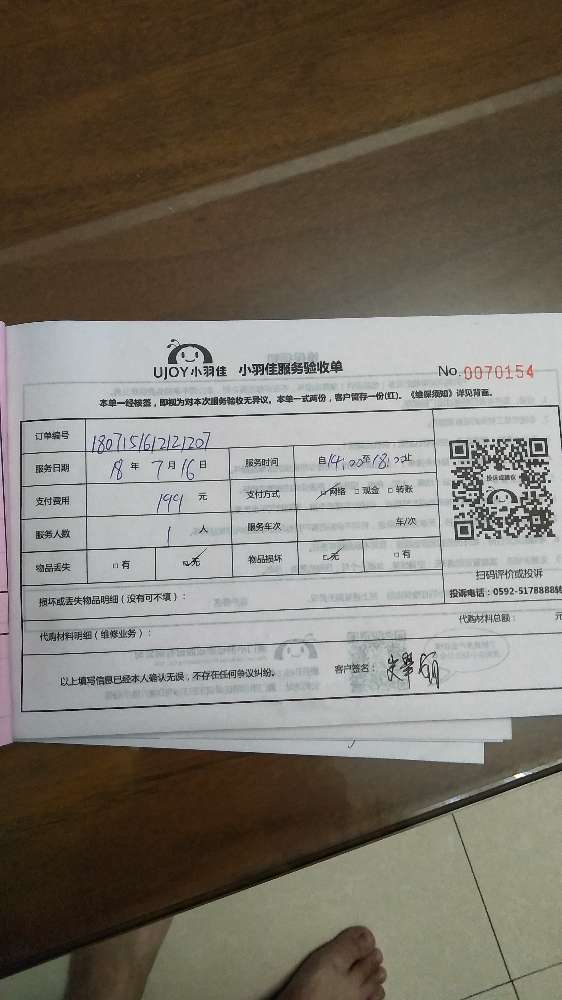 UJOY小羽佳 小羽佳服务验收单
No.0070154
本单一经核签，即视为对本次服务验收无异议。本单一式两份，客户留存一份(红)。《维保须知》详见背面。
订单编号 1807151612121207
服务日期 18 年 7 月 16 日 服务时间 自14:00至18:00止
支付费用 199 元 支付方式 ☑网络 □现金 □转账
服务人数 1 人 服务车次 车/次
物品丢失 □有 ☑无 物品损坏 ☑无 □有
投诉或建议
扫码评价或投诉
投诉电话：0592-5178888转
损坏或丢失物品明细（没有可不填）：
代购材料明细（维修业务）： 代购材料总额： 元
以上填写信息已经本人确认无误，不存在任何争议纠纷。 客户签名：